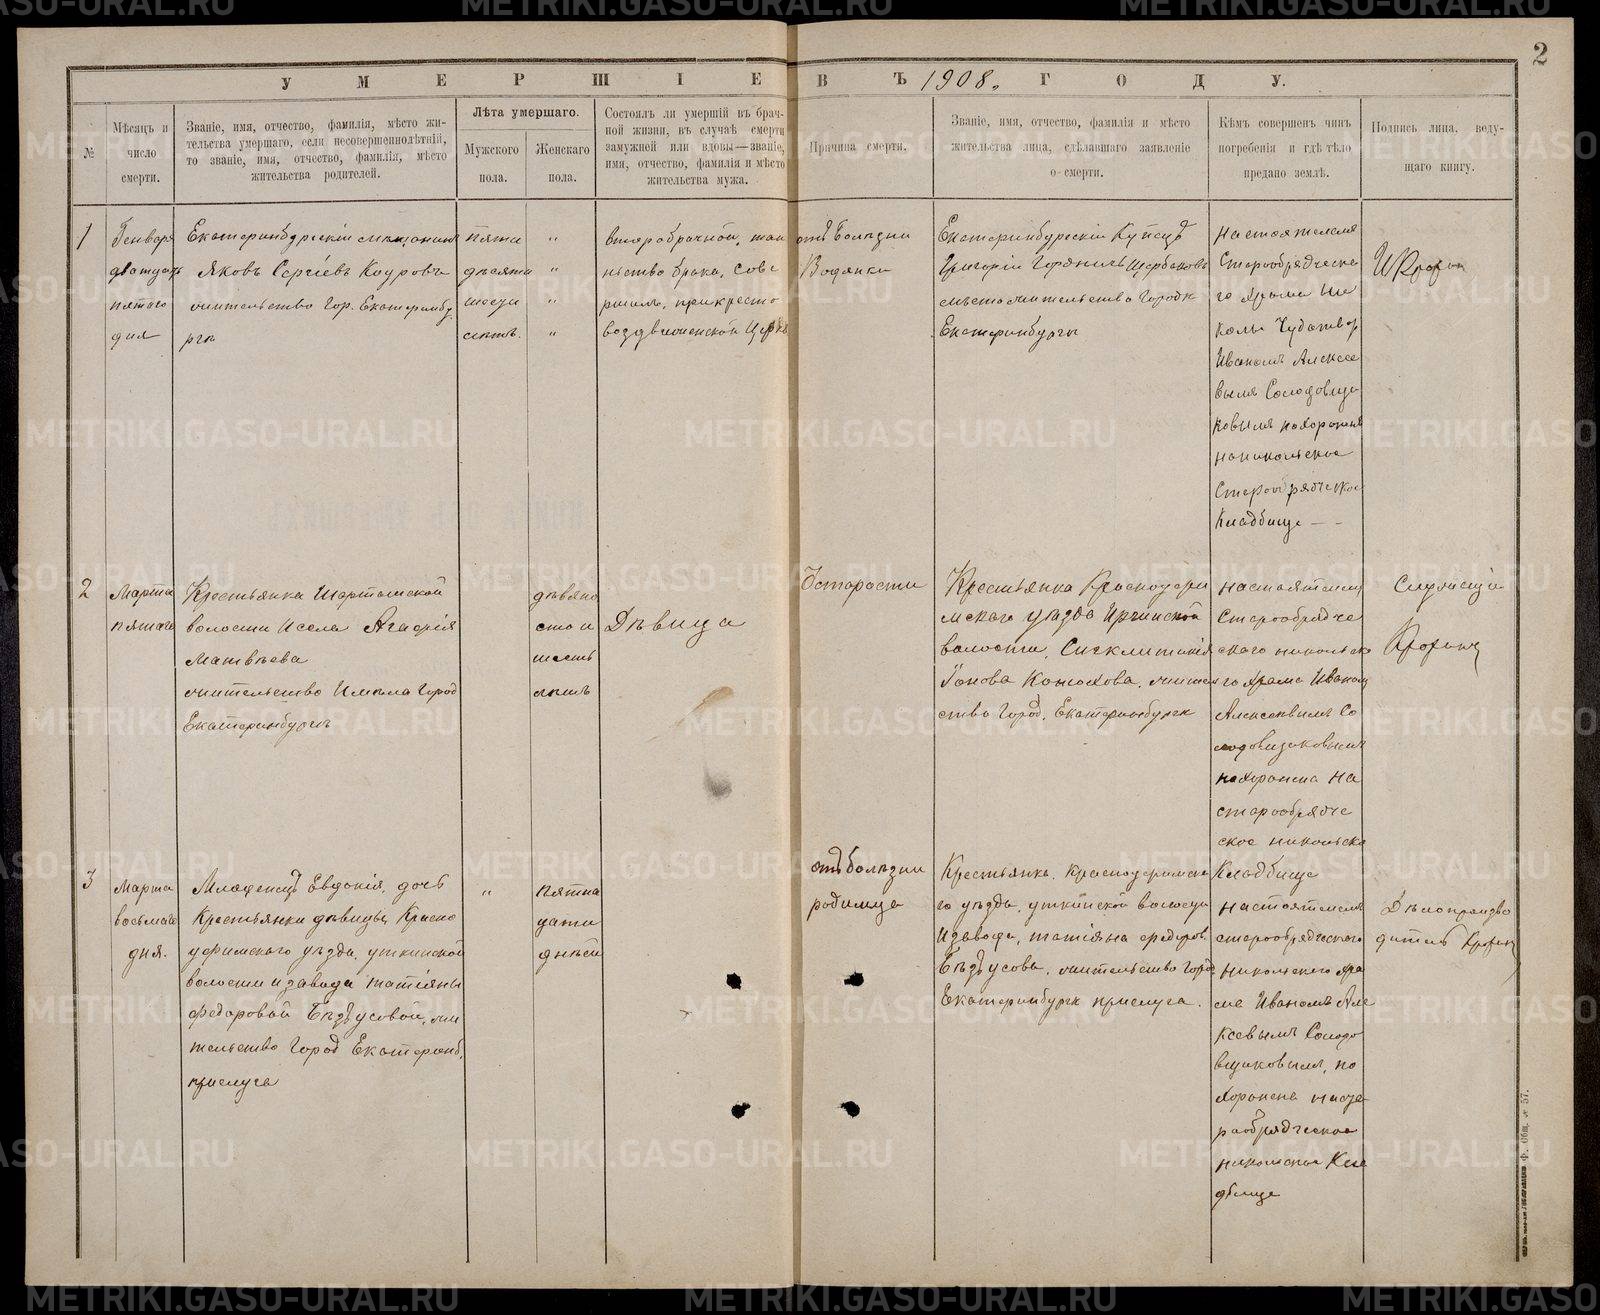 2
УМЕРШІЕ ВЪ 1908. ГОДУ.
№
Мѣсяцъ и
число
смерти.
Званіе, имя, отчество, фамилія, мѣсто жи-
тельства умершаго, если несовершеннолѣтній,
то званіе, имя, отчество, фамилія, мѣсто
жительства родителей.
Лѣта умершаго.
Мужского
пола.
Женскаго
пола.
Состоялъ ли умершій въ брач-
ной жизни, въ случаѣ смерти
замужней или вдовы—званіе,
имя, отчество, фамилія и мѣсто
жительства мужа.
Причина смерти.
Званіе, имя, отчество, фамилія и мѣсто
жительства лица, сдѣлавшаго заявленіе
о смерти.
Кѣмъ совершенъ чинъ
погребенія и гдѣ тѣло
предано землѣ.
Подпись лица, веду-
щаго книгу.
1
Генваря
двадцать
пятого
дня
Екатеринбургскій мещанинъ
Яковъ Сергіевъ
жительство Гор. Екатеринбу
ргъ
пяти
десяти
шести
лѣтъ.
"
"
"
"
второбрачной, таи
нство брака, сове
ршилъ, при кресто
воздвиженской Церкв
отъ Болѣзни
Водянки
Екатеринбургскій Купецъ
Григорій Щербаковъ
место жительства Городъ
Екатеринбургъ
настоятелемъ
Старообрядческа
го храма Ни
колы Чудотвор
Иваномъ Алексее
вымъ Солодовщи
ковымъ похоронен
на никольское
Старообрядческое
Кладбище
2
Марта
пятаго
Крестьянка Шарташской
волости и села Агафія
Матвѣева
жительство Имѣла город
Екатеринбургъ
дѣвяно
сто и
шесть
лѣтъ
Дѣвица
От старости
Крестьянка Красноуфи
мскаго уѣзда Иргинской
волости, Сигклитикія
Конюхова, жител
ство Город. Екатеринбургъ
настоятелемъ
Старообрядче
скаго никольска
го храма Иваном
Алексеевымъ Со
лодовщиковымъ
похоронена на
старообрядче
ское никольско
Кладбище
Служащій
3
Марта
восьмаго
дня.
Младенецъ Евдокія, дочь
Крестьянки дѣвицы, Красно
уфимского уѣзда, уткинской
волости и завода татіяны
федоровой жи
тельство Город Екатеринб.
прислуга
"
пятна
дцати
днѣй
отъ болѣзни
родимца
Крестьянка, Красноуфимска
го уѣзда, уткинской волости
и завода, татіяна федоров.
жительство Город
Екатеринбургъ прислуга.
настоятелемъ
старообрядческаго
Никольского хра
ма Иваномъ Але
ксеевымъ Солодо
вщиковымъ, по
хоронена на ста
рообрядческое
никольское Кла
дбище
Дѣлопроизво
дитель